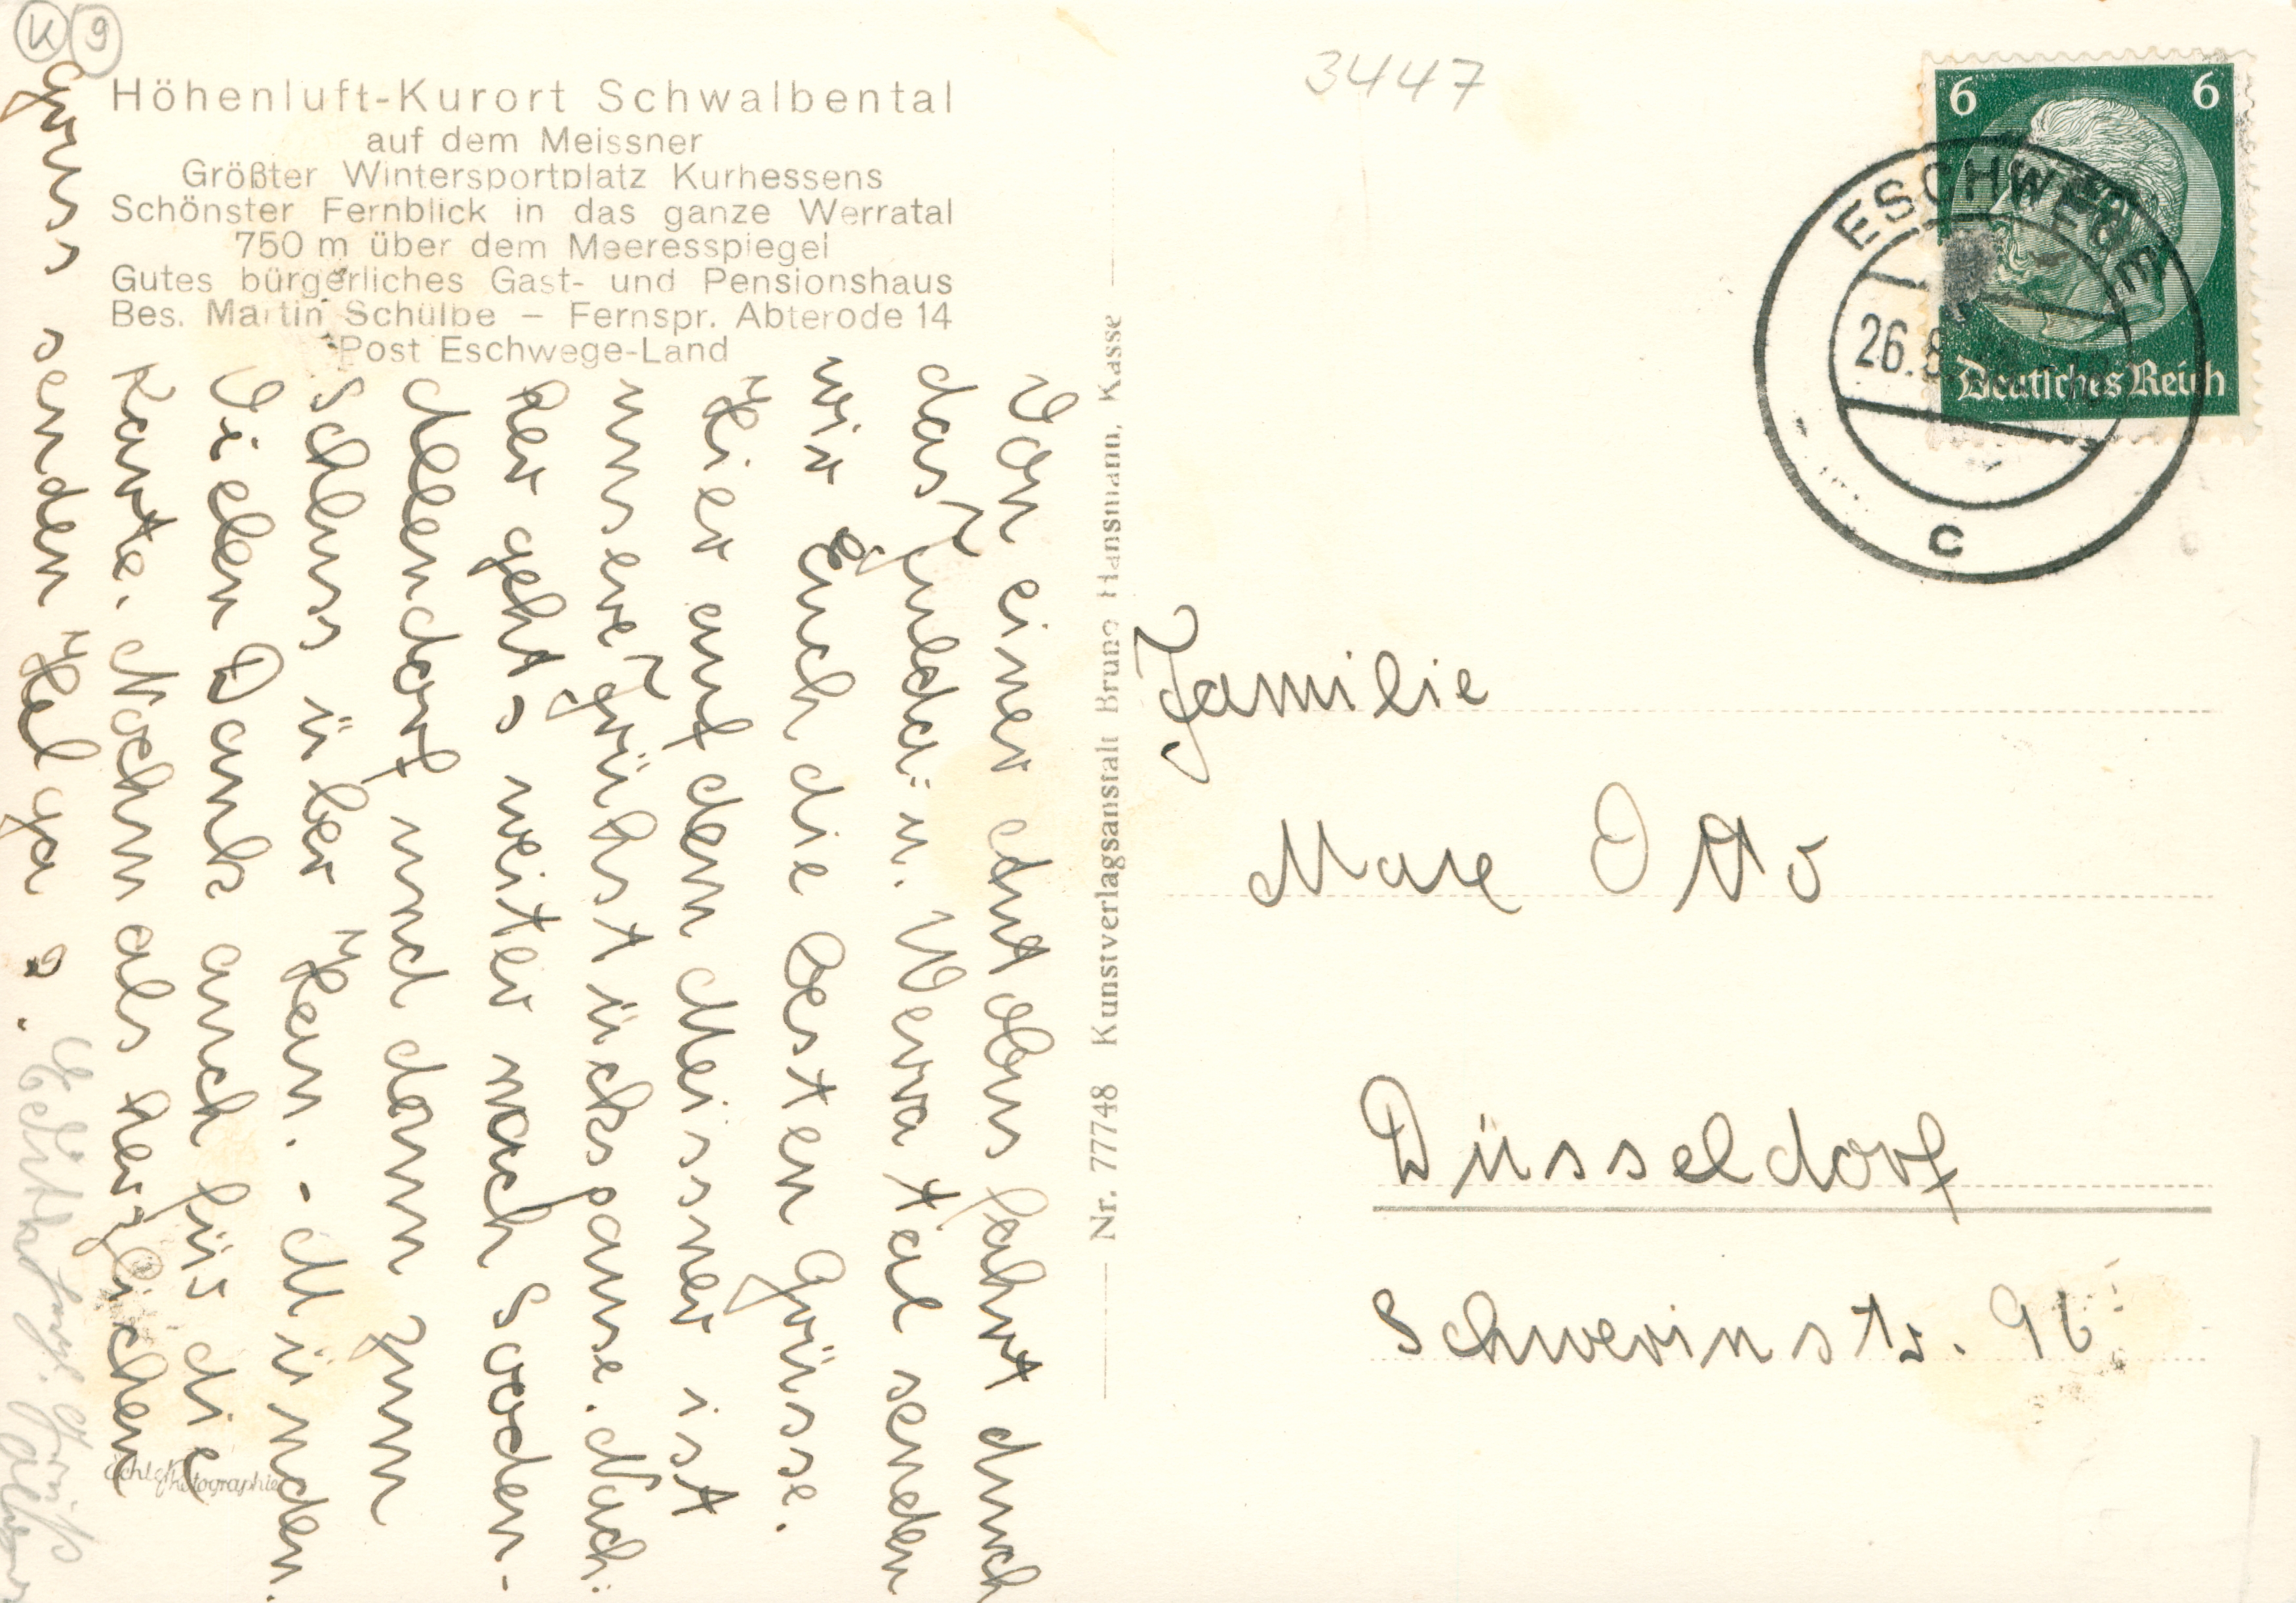 K 9
3447
Höhenluft-Kurort Schwalbental
auf dem Meissner
Größter Wintersportplatz Kurhessens
Schönster Fernblick in das ganze Werratal
750 m über dem Meeresspiegel
Gutes bürgerliches Gast- und Pensionshaus
Bes. Martin Schülbe – Fernspr. Abterode 14
Post Eschwege-Land
Von einer Autobusfahrt durch
das Fulda- u. Werratal senden
wir Euch die besten Grüsse.
Hier auf dem Meissner ist
unsere Frühstückspause. Nach-
her geht's weiter nach Sooden-
Allendorf und dann zum
Schluss über Han. - Münden.
Vielen Dank auch für die
Karte. Nochmals herzlichen
Gruss senden Helga u.
Gruß
Echte Photographie
Nr. 77748 Kunstverlagsanstalt Bruno Hansmann, Kassel
6 6
Deutsches Reich
ESCHWEGE
26.8.
c
Familie
Max Otto
Düsseldorf
Schwerinstr. 9b